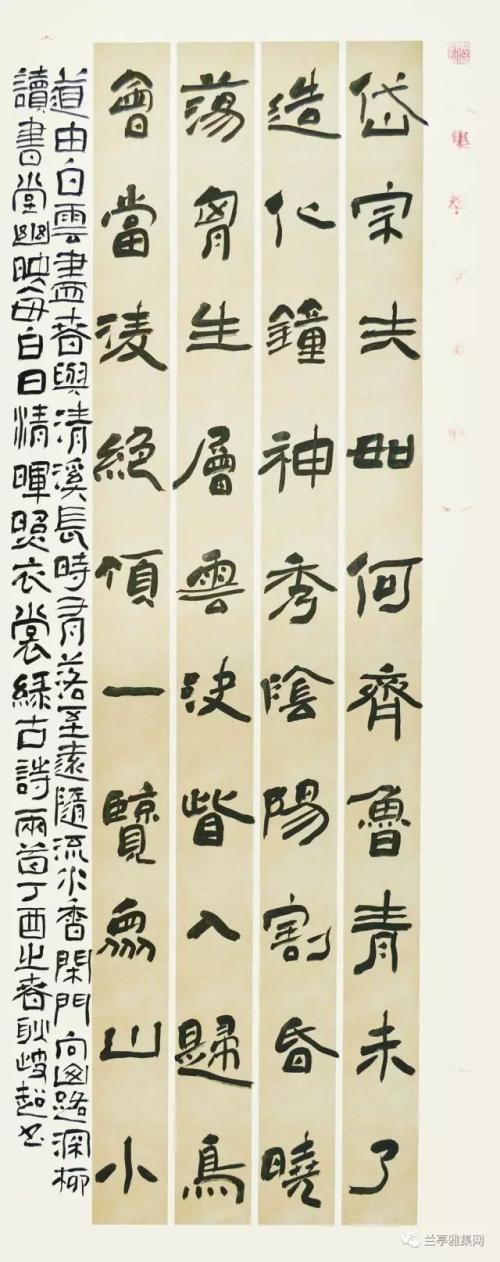 岱宗夫如何齊魯青未了
造化鐘神秀陰陽割昏曉
蕩胷生層雲決眥入歸鳥
會當淩絕頂一覽眾山小
道由白雲盡春與清溪長時有落至遠隨流水香閑門向山路深柳
讀書堂幽映每白日清暉照衣裳緑古詩兩首丁酉之春耿超书
兰亭雅集网